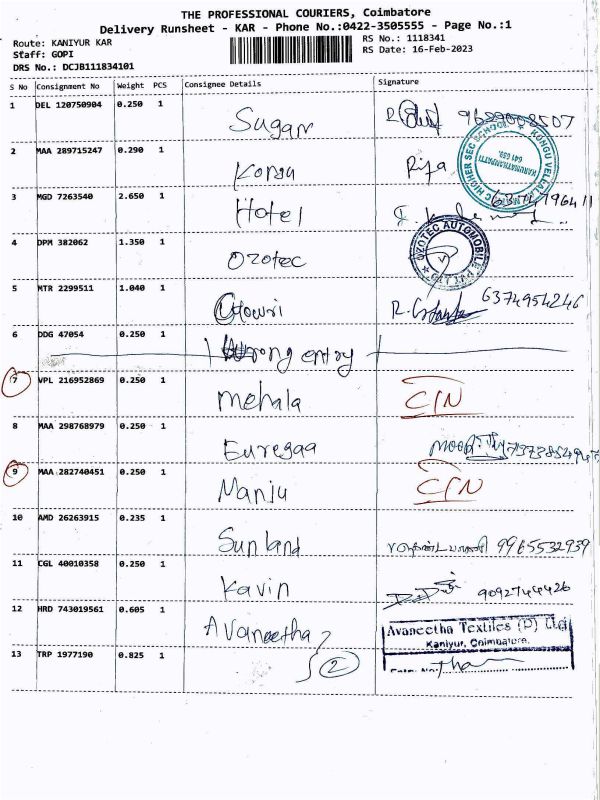 THE PROFESSIONAL COURIERS, Coimbatore
Delivery Runsheet - KAR - Phone No.:0422-3505555 - Page No.:1
Route: KANIYUR KAR
RS No.: 1118341
Staff: GOPI
RS Date: 16-Feb-2023
DRS No.: DCJB111834101
S No Consignment No Weight PCS Consignee Details Signature
1 DEL 120750904 0.250 1 Sugan 9689008507
2 MAA 289715247 0.290 1 Kongu Rifa
KONGU VELLALAR HIGHER SEC SCHOOL
KARUMATHAMPATTI
641 659.
3 MGD 7263540 2.650 1 Hotel 6374796411
4 DPM 382062 1.350 1 Ozotec
OZOTEC AUTOMOBILE PVT LTD
5 MTR 2299511 1.040 1 Gowri 6374954246
6 DDG 47054 0.250 1 Wrong entry
7 VPL 216952869 0.250 1 Mehala CIN
8 MAA 298768979 0.250 1 Euregaa
9 MAA 282740451 0.250 1 Manju CIN
10 AMD 26263915 0.235 1 Sunland 9965532939
11 CGL 40010358 0.250 1 Kavin 9092744426
12 HRD 743019561 0.605 1 Avaneetha
Avaneetha Textiles (P) Ltd
Kaniyur, Coimbatore.
13 TRP 1977190 0.825 1 2